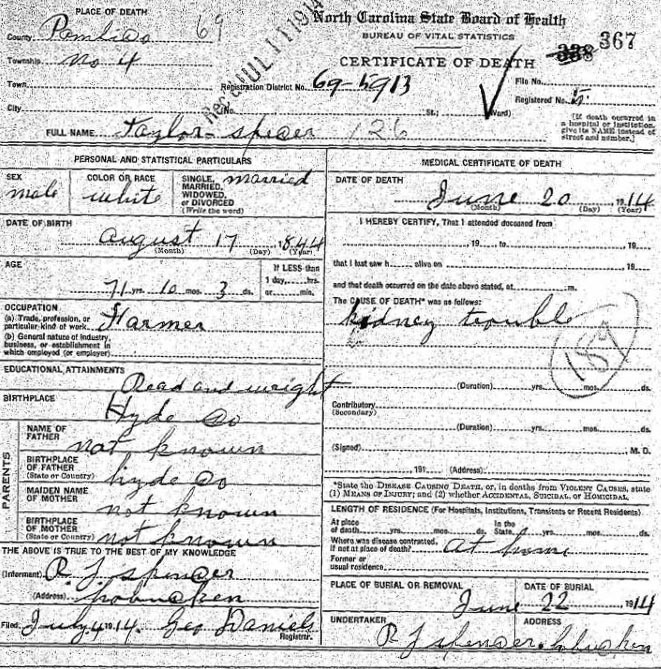 PLACE OF DEATH
North Carolina State Board of Health
BUREAU OF VITAL STATISTICS
CERTIFICATE OF DEATH
338 367
County Pamlico 69
Township No 4
Town
Rec'd JUL 11 1914
Registration District No. 69-5913
File No.
Registered No. 5
City
(No. St.; Ward)
[If death occurred in a hospital or institution, give its NAME instead of street and number.]
FULL NAME Taylor Spicer 126
PERSONAL AND STATISTICAL PARTICULARS
SEX
male
COLOR OR RACE
white
SINGLE, MARRIED, WIDOWED, or DIVORCED (Write the word)
married
DATE OF BIRTH
August 17, 1844
(Month) (Day) (Year)
AGE
71 yrs. 10 mos. 3 ds.
If LESS than 1 day, hrs. or min.
OCCUPATION
(a) Trade, profession, or particular kind of work. Farmer
(b) General nature of industry, business, or establishment in which employed (or employer)
EDUCATIONAL ATTAINMENTS
Read and wright
BIRTHPLACE
Hyde Co
PARENTS
NAME OF FATHER
not known
BIRTHPLACE OF FATHER (State or Country)
hyde co
MAIDEN NAME OF MOTHER
not known
BIRTHPLACE OF MOTHER (State or Country)
not known
THE ABOVE IS TRUE TO THE BEST OF MY KNOWLEDGE
(Informant) R J Spencer
(Address) hobucken
Filed July 4, 1914. Geo Daniels
Registrar.
MEDICAL CERTIFICATE OF DEATH
DATE OF DEATH
June 20 1914
(Month) (Day) (Year)
I HEREBY CERTIFY, That I attended deceased from
19 to 19
that I last saw h alive on 19
and that death occurred on the date above stated, at m.
The CAUSE OF DEATH* was as follows:
kidney trouble
189
(Duration) yrs. mos. ds.
Contributory
(Secondary)
(Duration) yrs. mos. ds.
(Signed) M. D.
191 (Address)
*State the DISEASE CAUSING DEATH, or, in deaths from VIOLENT CAUSES, state
(1) MEANS OF INJURY; and (2) whether ACCIDENTAL, SUICIDAL, or HOMICIDAL.
LENGTH OF RESIDENCE (For Hospitals, Institutions, Transients or Recent Residents)
At place of death yrs. mos. ds. In the State yrs. mos. ds.
Where was disease contracted, if not at place of death? At home
Former or usual residence
PLACE OF BURIAL OR REMOVAL
DATE OF BURIAL
June 22 1914
UNDERTAKER
ADDRESS
R J Spencer Hobucken